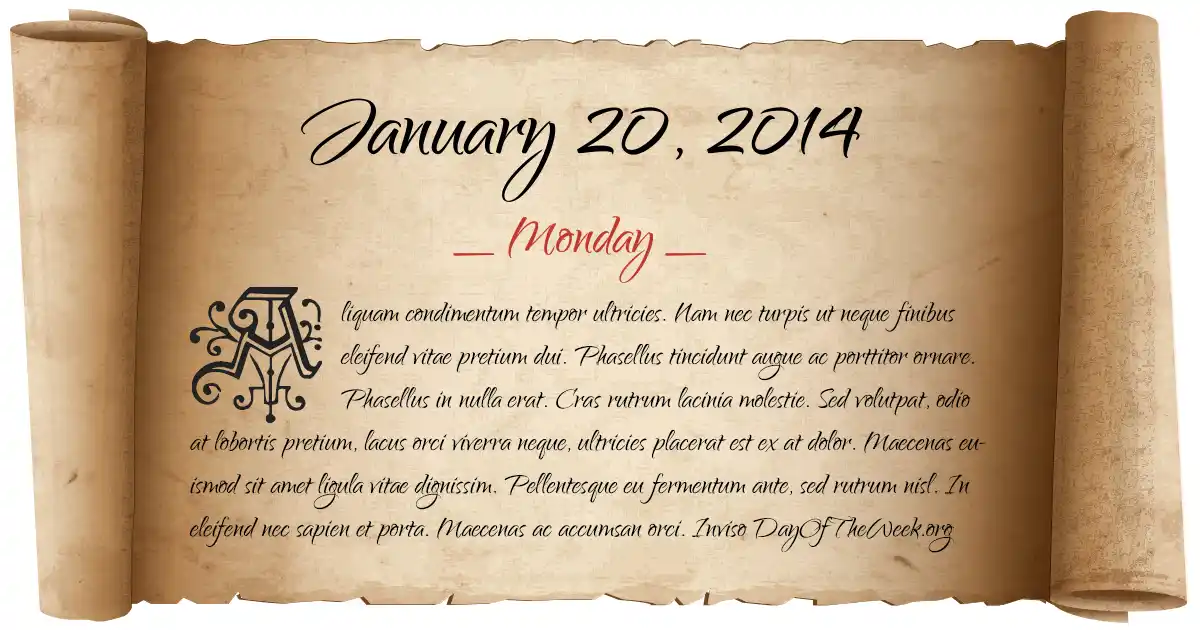 January 20, 2014
__ Monday __
Aliquam condimentum tempor ultricies. Nam nec turpis ut neque finibus
eleifend vitae pretium dui. Phasellus tincidunt augue ac porttitor ornare.
Phasellus in nulla erat. Cras rutrum lacinia molestie. Sed volutpat, odio
at lobortis pretium, lacus orci viverra neque, ultricies placerat est ex at dolor. Maecenas eu-
ismod sit amet ligula vitae dignissim. Pellentesque eu fermentum ante, sed rutrum nisl. In
eleifend nec sapien et porta. Maecenas ac accumsan orci. Inviso DayOfTheWeek.org